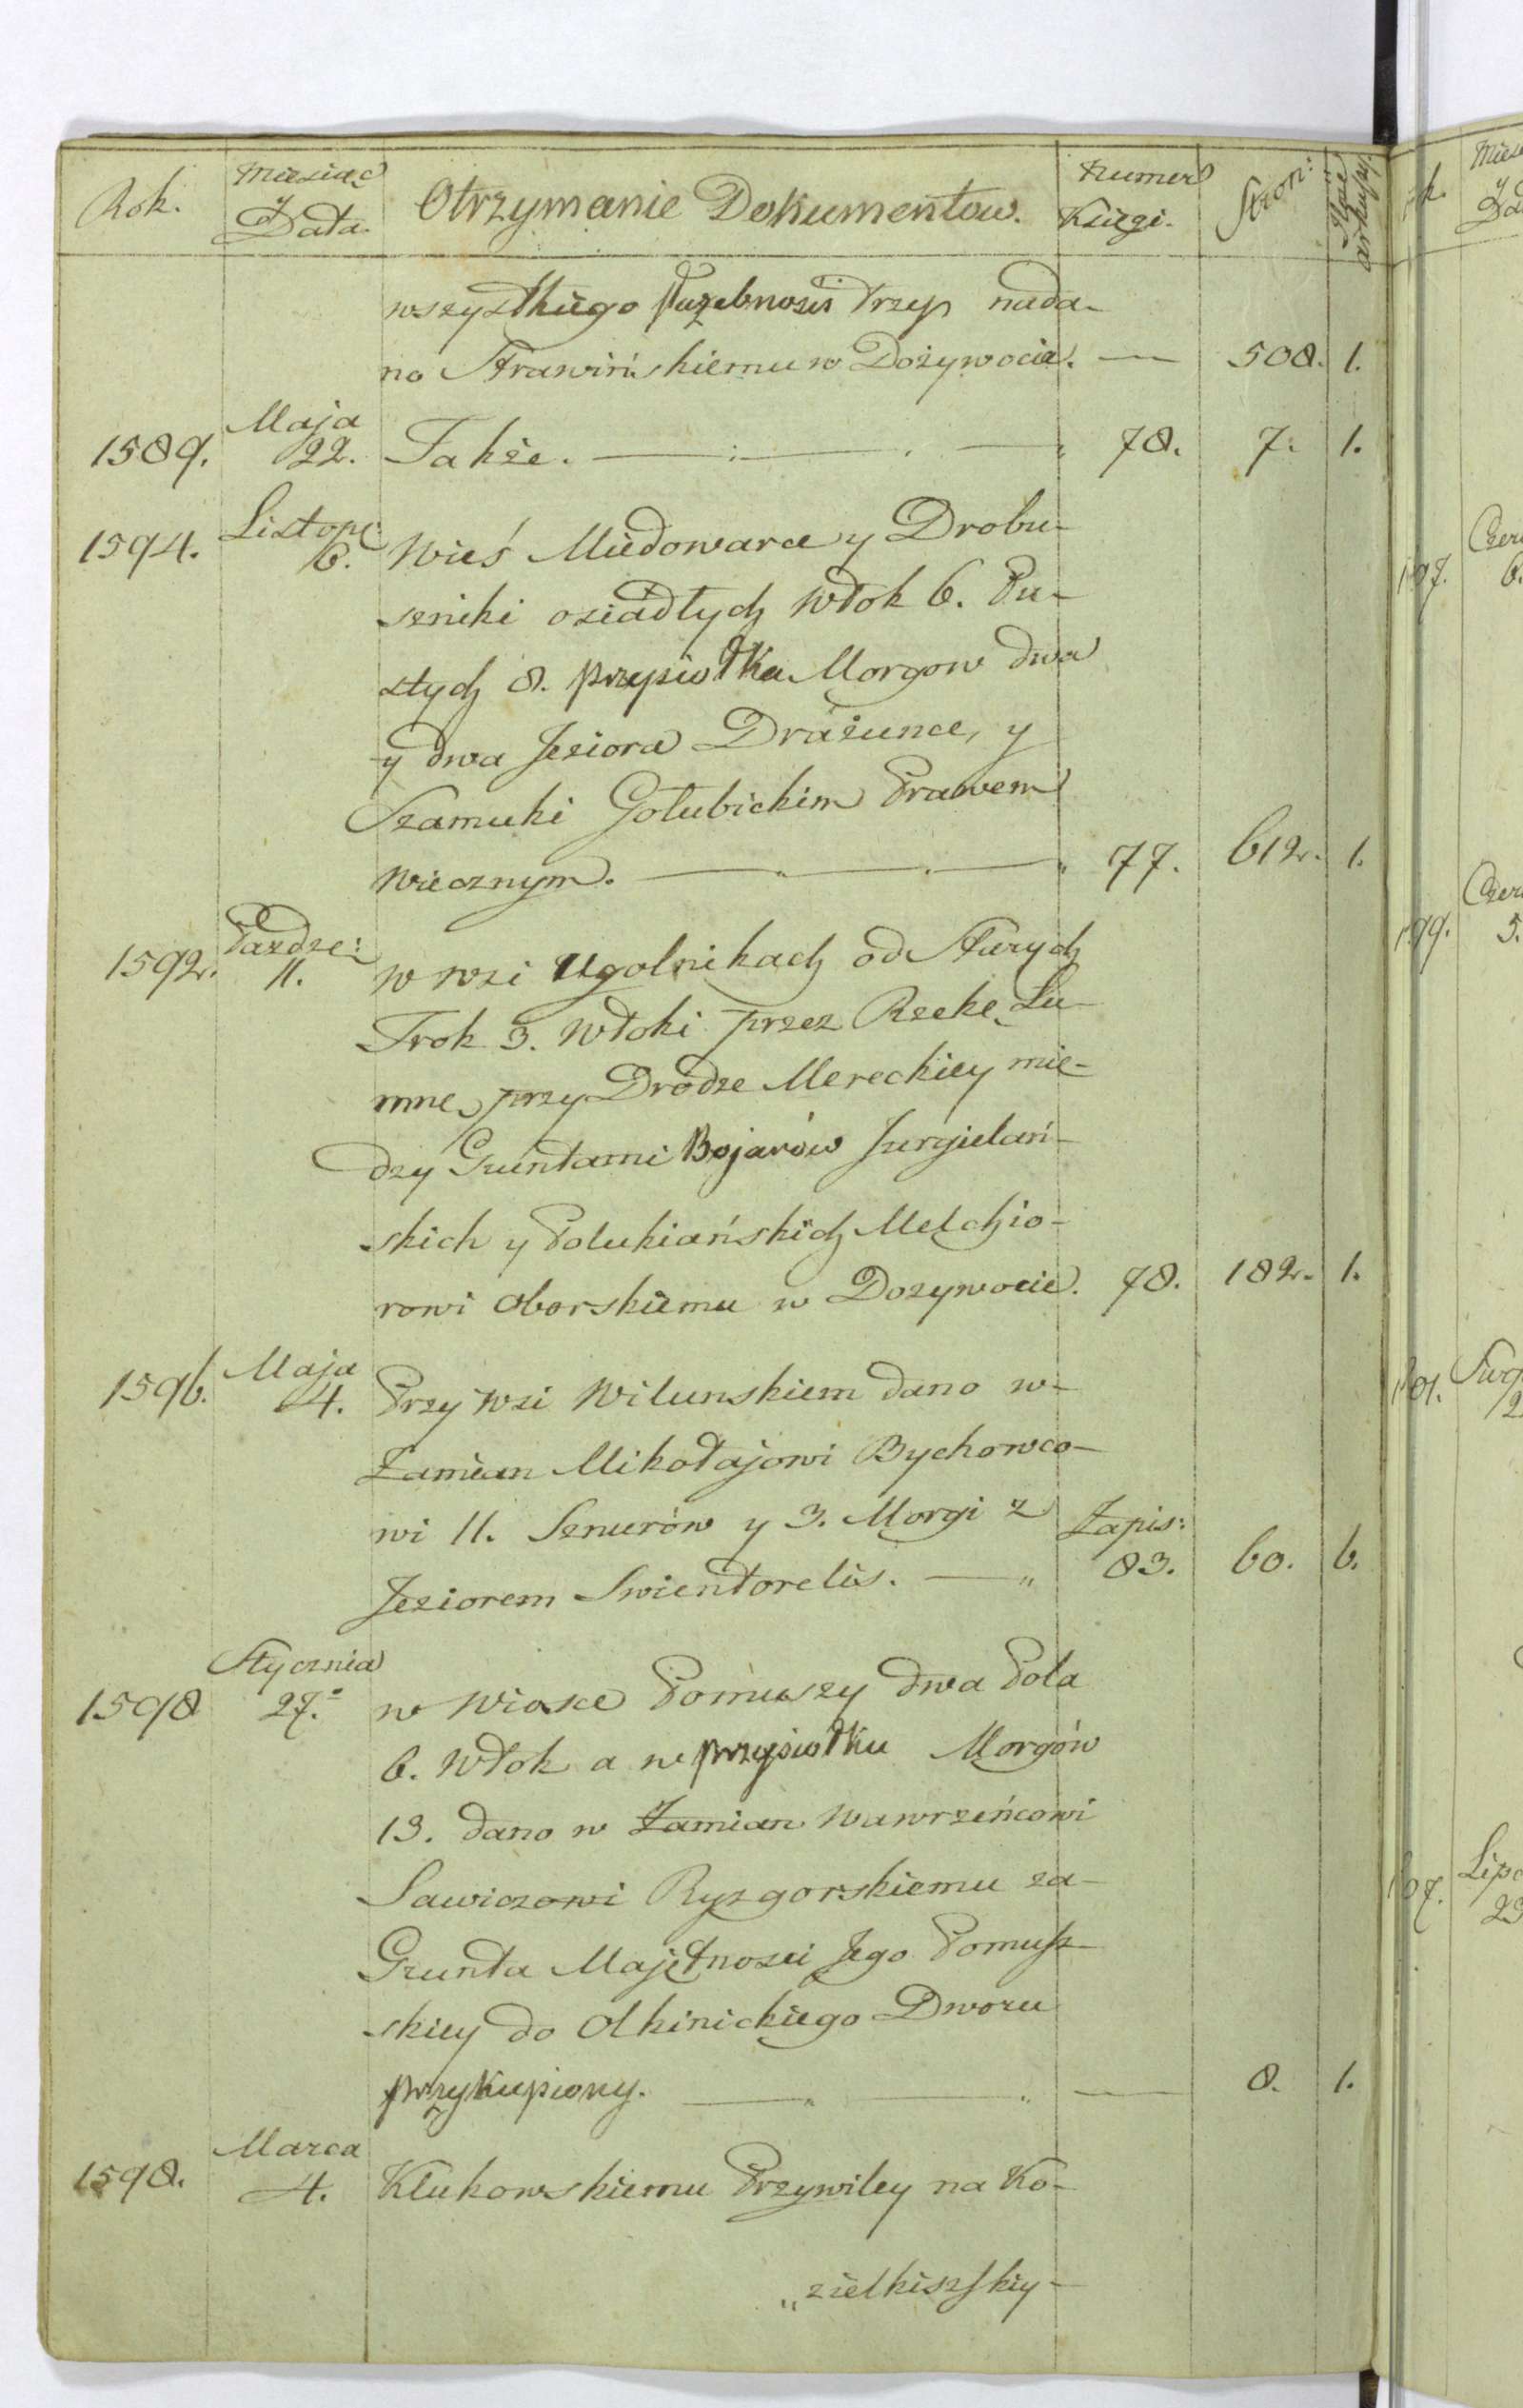 Rok. Miesiąc y Data. Otrzymanie Dokumentow. Numer Księgi. Stron: Ilość arkuszy.
wszystkiego służebności Trzy nada-
no Strawińskiemu w Dożywocie. — 508. 1.
1589. Maja 22. Także. — 78. 7. 1.
1594. Listopa: 6. Wieś Miedowarce y Drobu-
szniki osiadłych włok 6. Pu-
stych 8. przysiołka Morgow dwa
y dwa Jeziora Drażunce, y
Szamuki Gołubickim Prawem
Wiecznym. — 77. 612. 1.
1592. Pazdze: 11. w wsi Ugolnikach od Starych
Trok 3. Włoki przez Rzekę Lu-
mne, przy Drodze Mereckiey mie-
dzy Gruntami Bojarów Jurgielań-
skich y Polukiańskich Melchio-
rowi Oborskiemu w Dożywocie. 78. 182. 1.
1596. Maja 4. Przy wsi Wilunskiem dano w-
Zamian Mikołajowi Bychowco-
wi 11. Sznurów y 3. Morgi z
Jeziorem Swientorelis. — Zapis: 83. 60. 6.
1598 Stycznia 27. w Wiosce Pomuszy dwa Pola
6. Włok a w przysiołku Morgów
13. dano w Zamian Wawrzeńcowi
Sawiczowi Ryzgorskiemu za-
Grunta Majętności Jego Pomusz-
skiey do Olkinickiego Dworu
przykupiony. — 8. 1.
1598. Marca 4. Klukowskiemu Przywiley na Ko-
„zielkiszskiy-